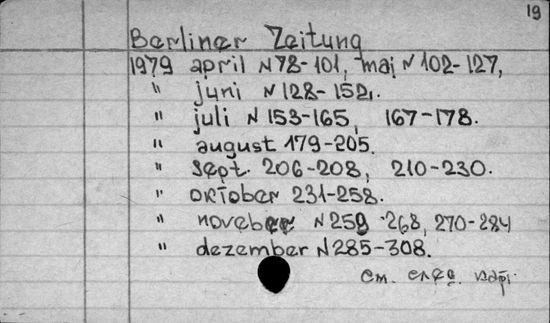 19
Berliner Zeitung
1979 april N 78-101, mai N 102-127,
" juni N 128-152.
" juli N 153-165, 167-178.
" august 179-205.
" sept. 206-208, 210-230.
" oktober 231-258.
" noveber N 259-268, 270-284
" dezember N 285-308.
см. след.